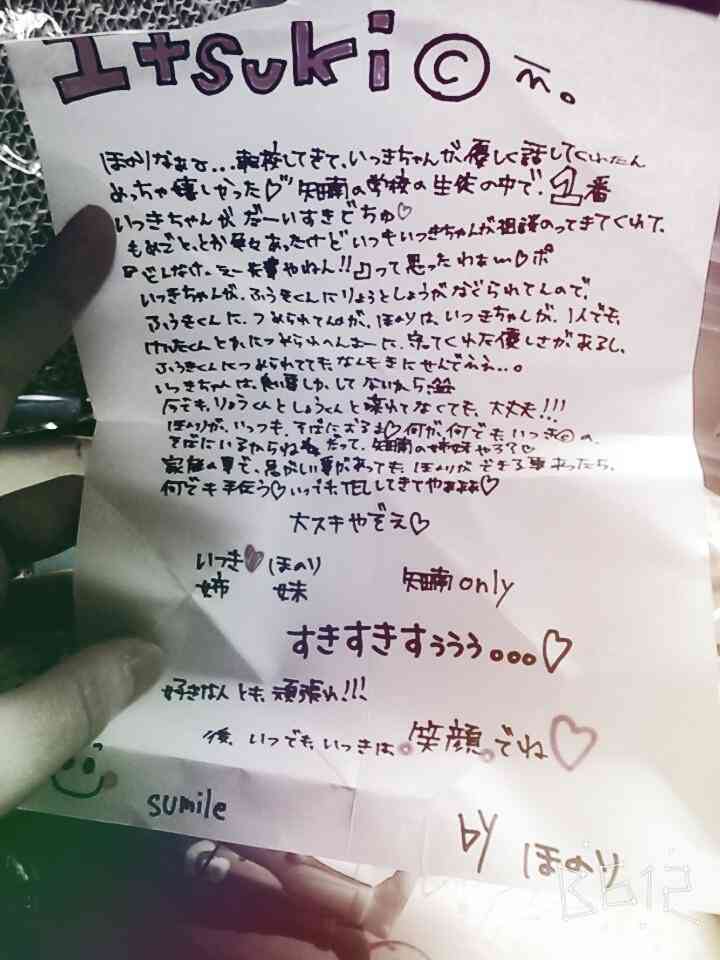 Itsukiⓒ m。
ほのりなぁで...転校してきて、いっきちゃんが、優しく話してくれたん
めっちゃ嬉しかった♡ 知南の学校の生徒の中で、1番
いっきちゃんがだーいすきどちゅ♡
もめごと、とか色々あったけどいつもいっきちゃんが相談のってきてくれて、
って思ったわぁ〜♡ポ
いっきちゃんが、ふうきくんにりょうとしょうがなぐられてんので、
ふうきくんに、つめられてんが、ほのりは、いっきちゃんが、1人でも、
けんたくんとかにつめられへんように、守ってくれた優しさがあるし、
ふうきくんにつめられてても、なんもきにせんでええ、。
いっきちゃんは、しか、してないから、
今でも、りょうくんとしょうくんと喋れてなくても、大丈夫!!!
ほのりが、いっつも、そばにおるよ♡何が、何でもいっきⓒの、
そばにいるからねだって、知南の姉妹やろ?♡
家庭の事で、悲しい事があっても、ほのりができる事あったら、
何でも手伝う♡いつでもTELしてきてやぁぁぁ♡
大スキやぞえ♡
いっき♡ほのり
姉 妹 知南only
すきすきすぅぅぅ。。。♡
好きな人とも、頑張れ!!!
後、いつでも、いっきは。笑顔。でね♡
sumile
by ほのり
B612